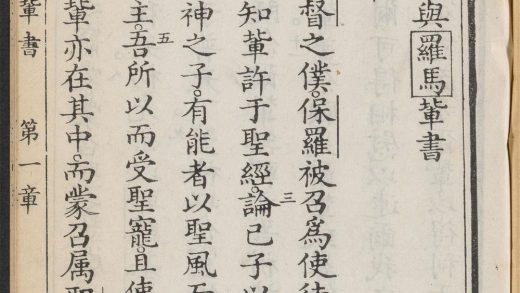 與羅馬輩書
督之僕。保羅被召爲使徒
知輩許于聖經。論己子以
三
神之子。有能者以聖風
五
主。吾所以而受聖寵。且使
輩亦在其中。而蒙召属
輩書 第一章